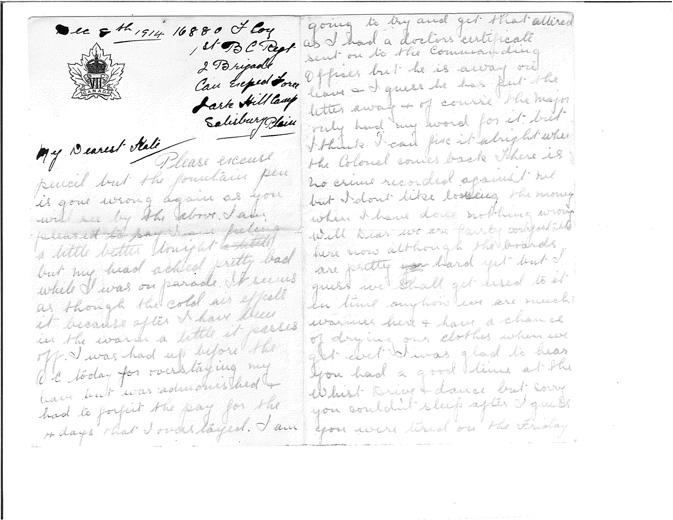 Dec 8th 1914 16880 F Coy
1st B C Regt
2 Brigade
Can Exped Force
Lark Hill Camp
Salisbury Plain
VII
CANADA
My Dearest Kate
Please excuse
pencil but the fountain pen
is gone wrong again as you
will see by the above. I am
pleased to say I am feeling
a little better tonight
but my head ached pretty bad
while I was on parade. It seems
as though the cold air effects
it because after I have been
in the warm a little it passes
off. I was had up before the
O C today for overstaying my
leave but was admonished &
had to forfit the pay for the
4 days that I overstayed. I am
going to try and get that altered
as I had a doctors certificate
sent on to the Commanding
Officer but he is away on
leave & I guess he has put the
letter away & of course the major
only had my word for it but
I think I can fix it alright when
the Colonel comes back. There is
no crime recorded against me
but I dont like loosing the money
when I have done nothing wrong
Well Dear we are fairly comfortable
here now although the boards
are pretty hard yet but I
guess we shall get used to it
in time anyhow we are much
warmer here & have a chance
of drying our clothes when we
get wet. I was glad to hear
you had a good time at the
Whist Drive & dance but sorry
you couldnt sleep after I guess
you were tired on the Friday